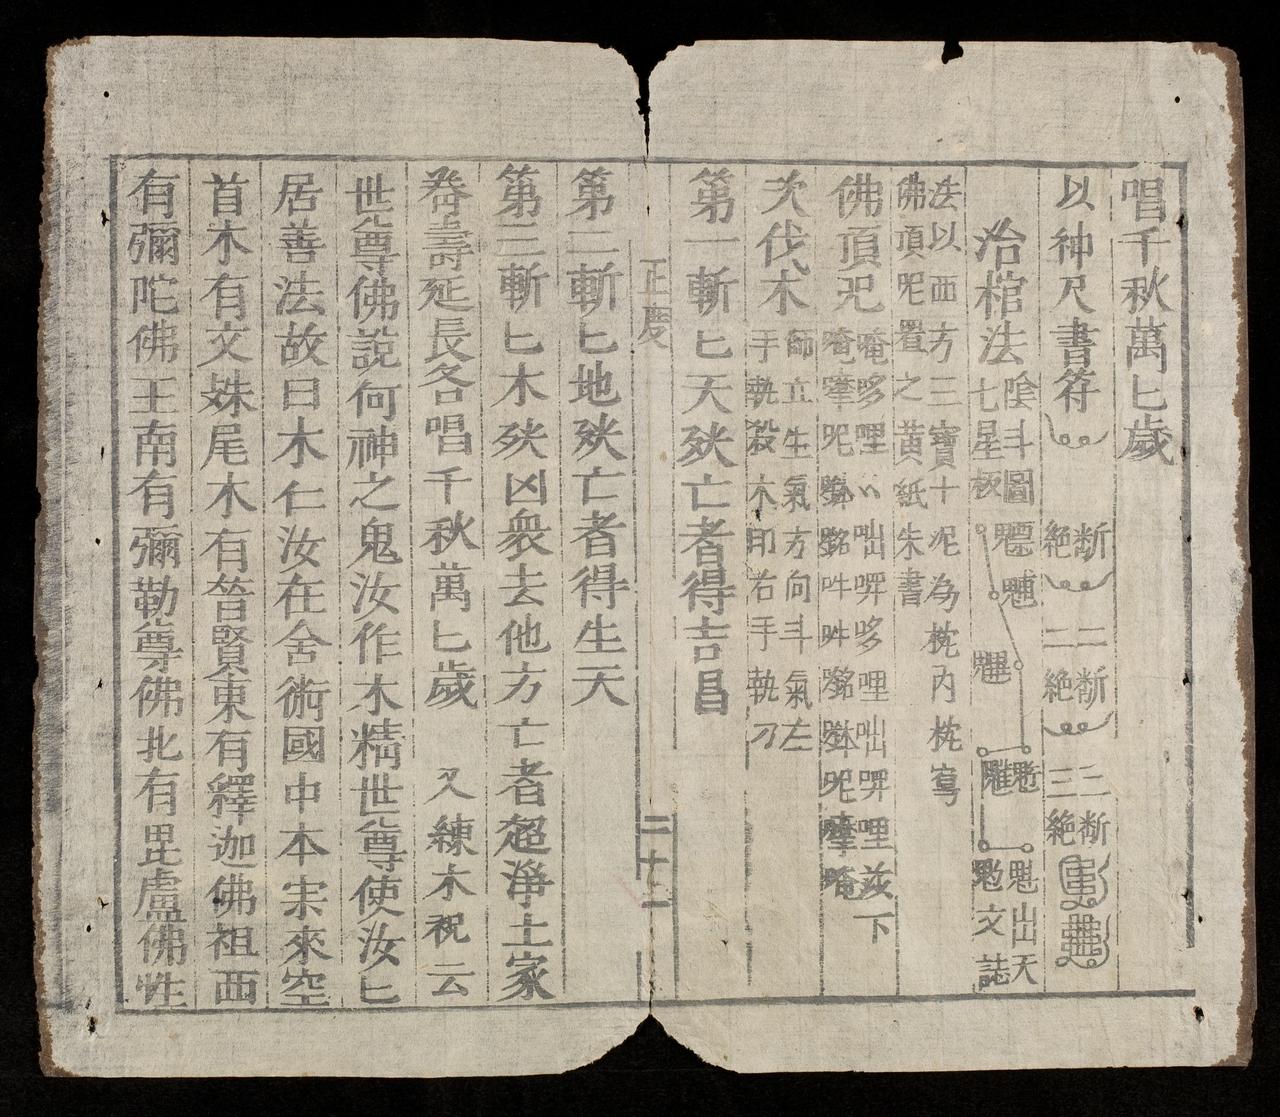 唱千秋萬匕歲
以神尺書符 斷絕 二斷二絕 三斷三絕
治棺法 陰斗圖七星板 魒 魓 魋 文誌 出天
法以西方三寶十泥為枕內枕寫
佛頂呪置之黄紙朱書
佛頂呪 唵哆哩 咄㗚哆哩咄㗚哩茲下
次伐木 師立生氣方向斗氣左
手執殺木印右手執刀
第一斬匕天殃亡者得吉昌
正度 二十二
第二斬匕地殃亡者得生天
第三斬匕木殃凶衆去他方亡者超淨土家
眷壽延長各唱千秋萬匕歲 又練木祝云
世尊佛說何神之鬼汝作木精世尊使汝匕
居善法故曰木仁汝在舍術國中本宋來空
首木有文姝尾木有晉賢東有釋迦佛祖西
有彌陀佛王南有彌勒尊佛北有毘盧佛性